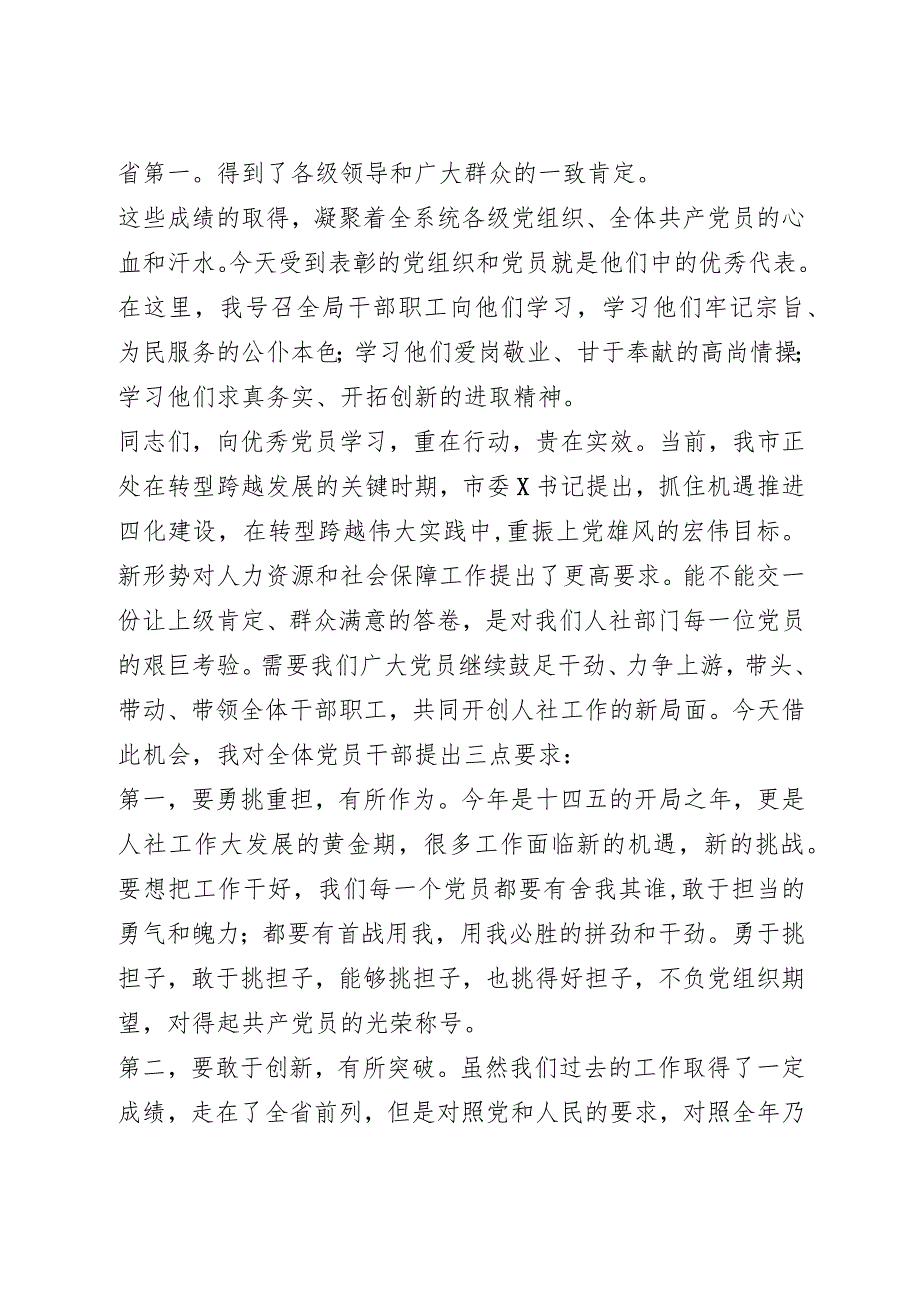 省第一。得到了各级领导和广大群众的一致肯定。
这些成绩的取得，凝聚着全系统各级党组织、全体共产党员的心
血和汗水。今天受到表彰的党组织和党员就是他们中的优秀代表。
在这里，我号召全局干部职工向他们学习，学习他们牢记宗旨、
为民服务的公仆本色；学习他们爱岗敬业、甘于奉献的高尚情操；
学习他们求真务实、开拓创新的进取精神。
同志们，向优秀党员学习，重在行动，贵在实效。当前，我市正
处在转型跨越发展的关键时期，市委X书记提出，抓住机遇推进
四化建设，在转型跨越伟大实践中,重振上党雄风的宏伟目标。
新形势对人力资源和社会保障工作提出了更高要求。能不能交一
份让上级肯定、群众满意的答卷，是对我们人社部门每一位党员
的艰巨考验。需要我们广大党员继续鼓足干劲、力争上游，带头、
带动、带领全体干部职工，共同开创人社工作的新局面。今天借
此机会，我对全体党员干部提出三点要求：
第一，要勇挑重担，有所作为。今年是十四五的开局之年，更是
人社工作大发展的黄金期，很多工作面临新的机遇，新的挑战。
要想把工作干好，我们每一个党员都要有舍我其谁,敢于担当的
勇气和魄力；都要有首战用我，用我必胜的拼劲和干劲。勇于挑
担子，敢于挑担子，能够挑担子，也挑得好担子，不负党组织期
望，对得起共产党员的光荣称号。
第二，要敢于创新，有所突破。虽然我们过去的工作取得了一定
成绩，走在了全省前列，但是对照党和人民的要求，对照全年乃